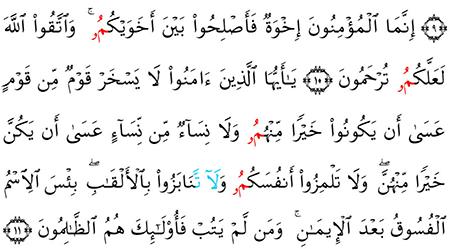 ﴿٩﴾ إِنَّمَا ٱلْمُؤْمِنُونَ إِخْوَةٌ فَأَصْلِحُوا۟ بَيْنَ أَخَوَيْكُمُۥ ۚ وَٱتَّقُوا۟ ٱللَّهَ
لَعَلَّكُمُۥ تُرْحَمُونَ ﴿١٠﴾ يَـٰٓأَيُّهَا ٱلَّذِينَ ءَامَنُوا۟ لَا يَسْخَرْ قَوْمٌ مِّن قَوْمٍ
عَسَىٰٓ أَن يَكُونُوا۟ خَيْرًا مِّنْهُمُۥ وَلَا نِسَآءٌ مِّن نِّسَآءٍ عَسَىٰٓ أَن يَكُنَّ
خَيْرًا مِّنْهُنَّ ۖ وَلَا تَلْمِزُوٓا۟ أَنفُسَكُمُۥ وَلَآ تَّنَابَزُوا۟ بِٱلْأَلْقَـٰبِ ۖ بِئْسَ ٱلِٱسْمُ
ٱلْفُسُوقُ بَعْدَ ٱلْإِيمَـٰنِ ۚ وَمَن لَّمْ يَتُبْ فَأُو۟لَـٰٓئِكَ هُمُ ٱلظَّـٰلِمُونَ ﴿١١﴾